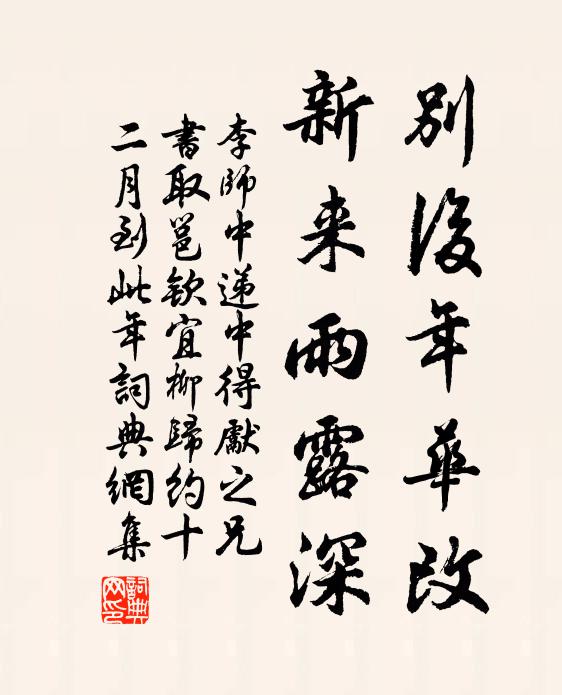 別後年華改
新来雨露深
李師中遞中得獻之兄
書取邕欽宜柳歸約十
二月到此年詞典網集
詞典网印